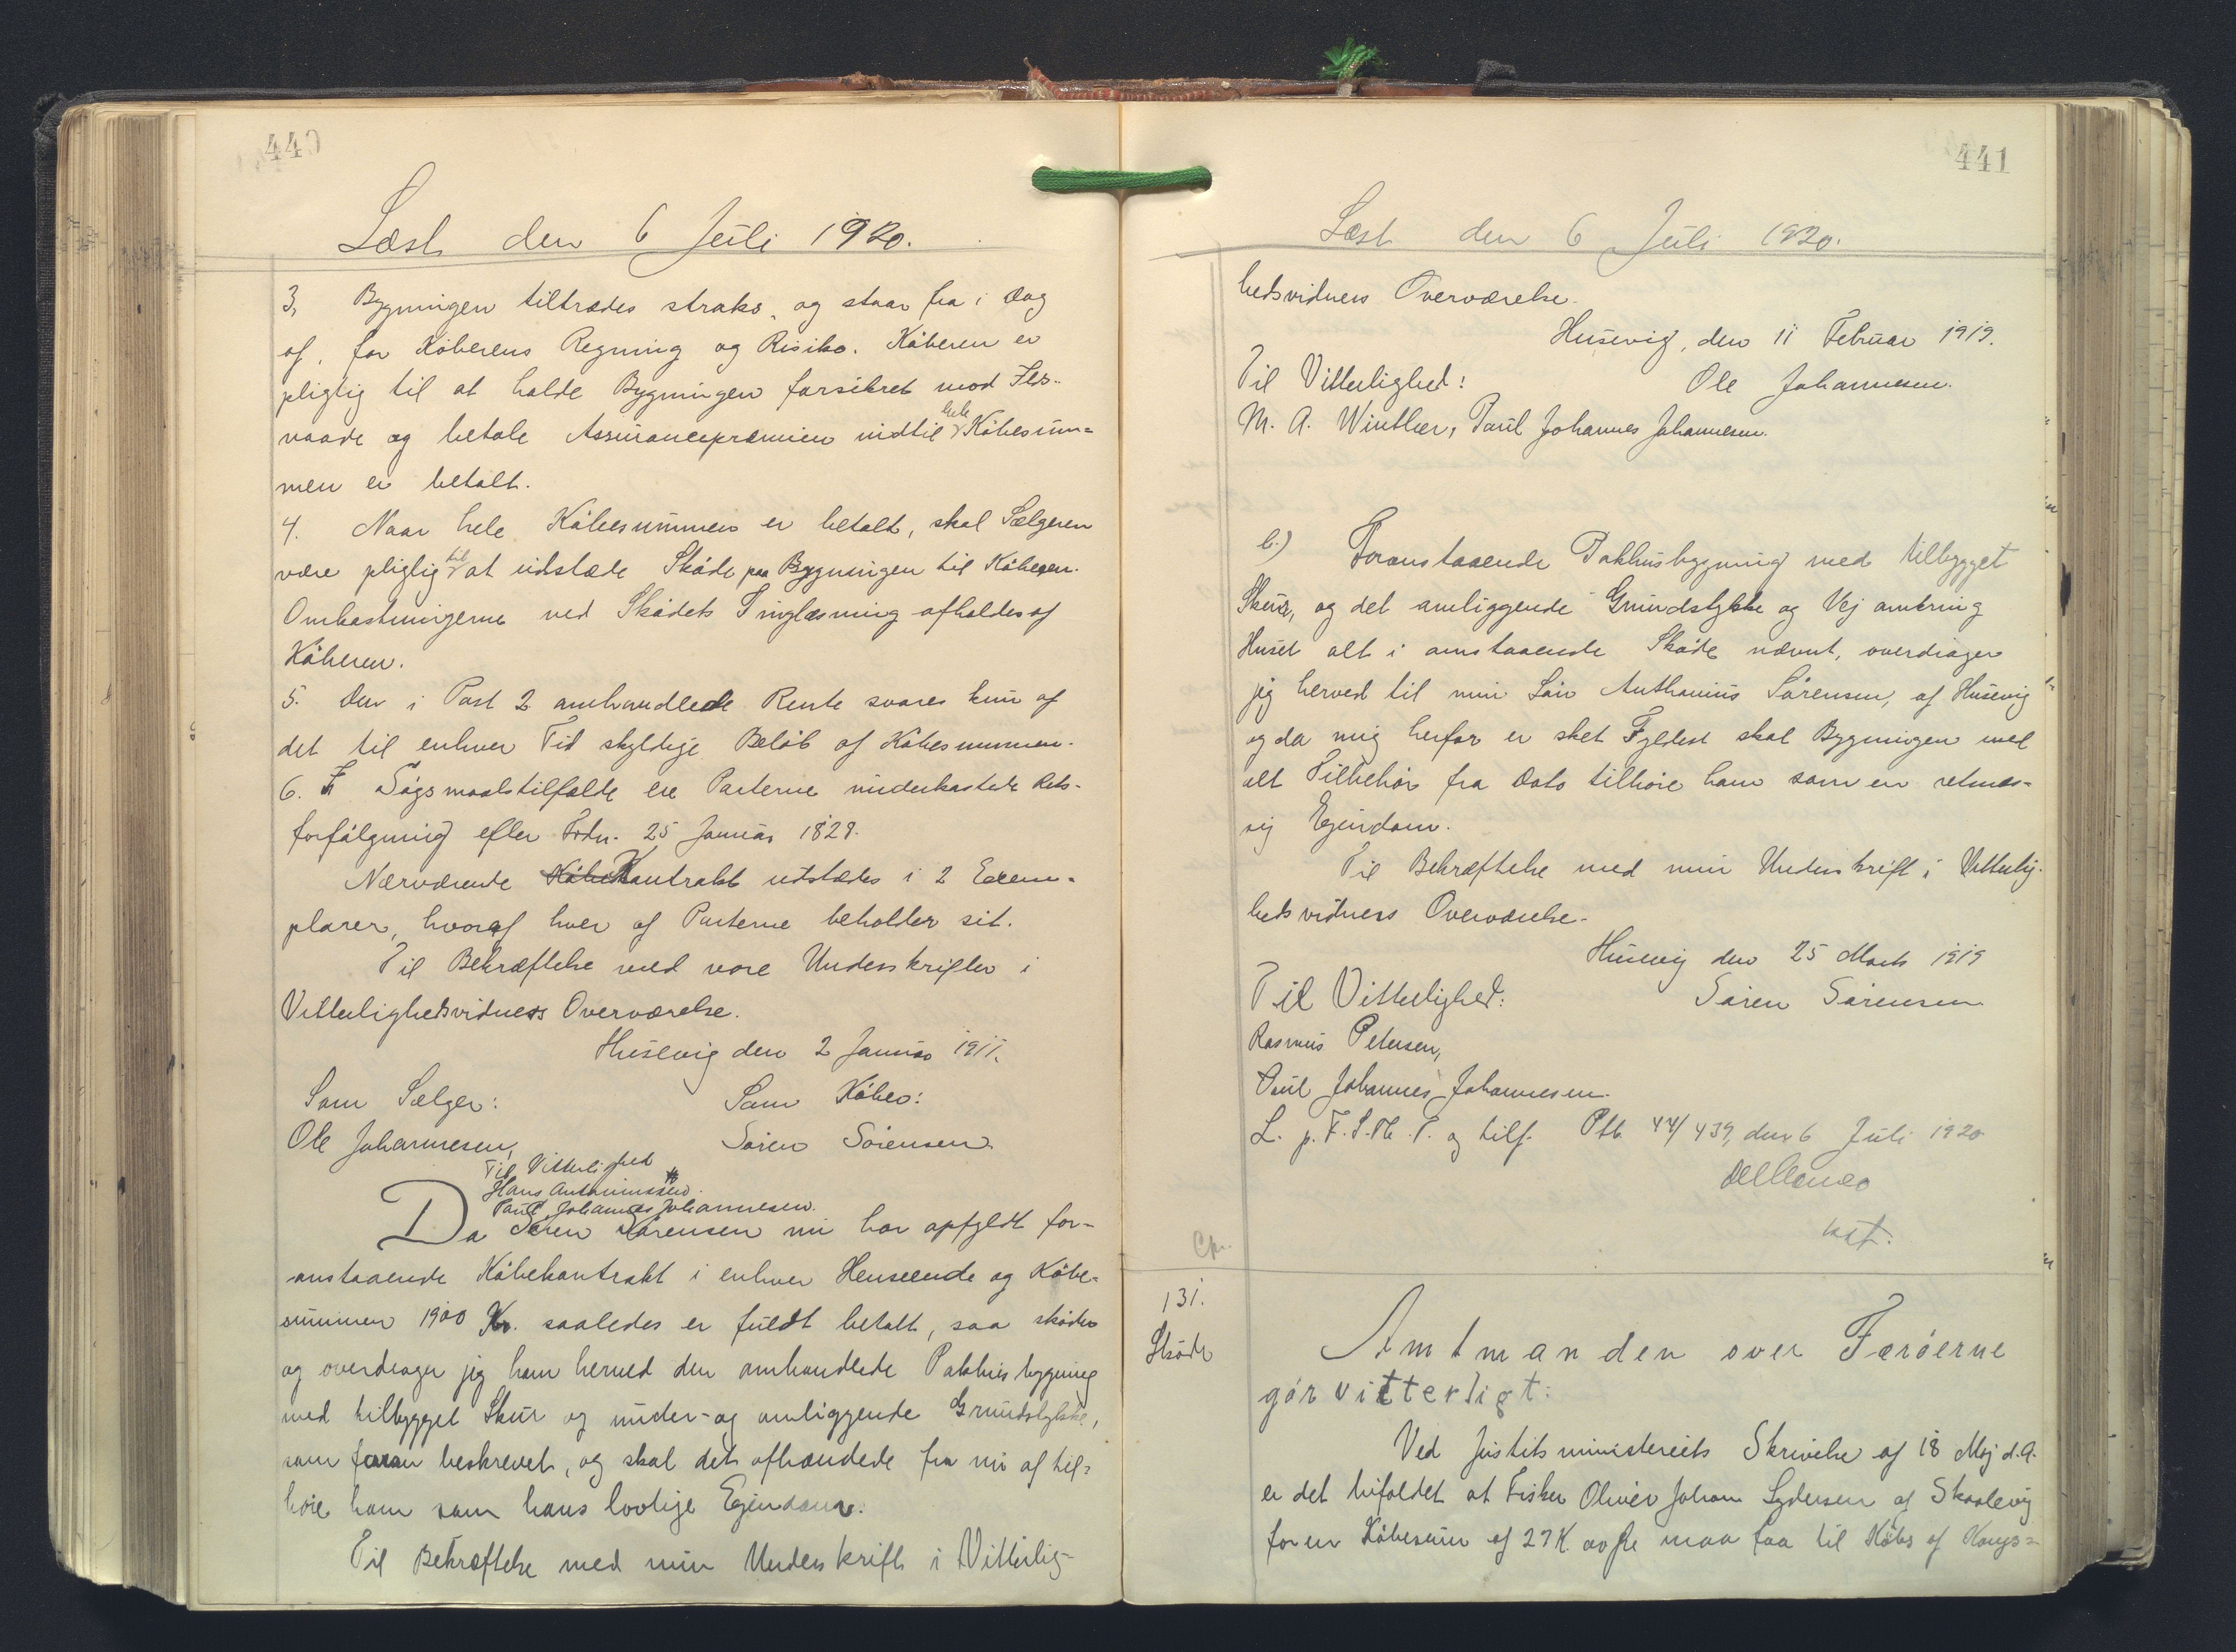 440
Læst den 6 Juli 1920.
3, Bygningen tiltrædes straks, og staar fra i Dag
af, for Køberens Regning og Risiko. Køberen er
pligtig til at holde Bygningen forsikret mod Ilds-
vaade og betale Assurancepræmien indtil hele Købesum-
men er betalt.
4. Naar hele Købesummen er betalt, skal Sælgeren
være pligtig til at udstæde Skøde paa Bygningen til Køberen.
Omkostningerne ved Skødets Tinglæsning afholdes af
Køberen.
5. Den i Post 2 omhandlede Rente svares kun af
det til enhver Tid skyldige Beløb af Købesummen.
6. I Søgsmaalstilfælde ere Parterne underkastede Rets-
forfølgning efter Frdn. 25 Januar 1828.
Nærværende Købekontrakt udstædes i 2 Exem-
plarer, hvoraf hver af Parterne beholder sit.
Til Bekræftelse med vore Underskrifter i
Vitterlighedsvidners Overværelse.
Husevig den 2 Januar 1911.
Som Sælger: Som Køber:
Ole Johannesen, Søren Sørensen
Til Vitterlighed
Hans Anthoniussen.
Paul Johannes Johannesen.
Da Søren Sørensen nu har opfyldt for-
anstaaende Købekontrakt i enhver Henseende og Købe-
summen 1900 Kr. saaledes er fuldt betalt, saa skøder
og overdrager jeg ham herved den omhandlede Pakhusbygning
med tilbygget Skur og under- og omliggende Grundstykke,
som foran beskrevet, og skal det afhændede fra nu af til-
høre ham som hans lovlige Ejendom.
Til Bekræftelse med min Underskrift i Vitterlig-
441
Læst den 6 Juli 1920.
hedsvidners Overværelse.
Husevig, den 11 Februar 1919.
Til Vitterlighed: Ole Johannesen.
M. A. Winther, Paul Johannes Johannesen.
b.) Foranstaaende Pakhusbygning med tilbygget
Skur, og det omliggende Grundstykke og Vej omkring
Huset alt i omstaaende Skøde nævnt, overdrager
jeg herved til min Søn Anthonius Sørensen, af Husevig
og da mig herfor er sket Fyldest skal Bygningen med
alt Tilbehør fra Dato tilhøre ham som en retmæs-
sig Ejendom.
Til Bekræftelse med min Underskrift i Vitterlig-
hedsvidners Overværelse.
Husevig den 25 Marts 1919
Til Vitterlighed: Søren Sørensen
Rasmus Petersen,
Paul Johannes Johannesen.
L. p. F. S. Th. T. og tilf. Ptb. 44/439, den 6 Juli 1920
kst.
Cpr.
131.
Skøde
Amtmanden over Færøerne
gør vitterligt:
Ved Justitsministeriets Skrivelse af 18 Maj d. A.
er det bifaldet at Fisker Oliver Johan Lydersen af Skaalevig
for en Købesum af 27 K 00 Øre maa faa til Købs af Kongs-